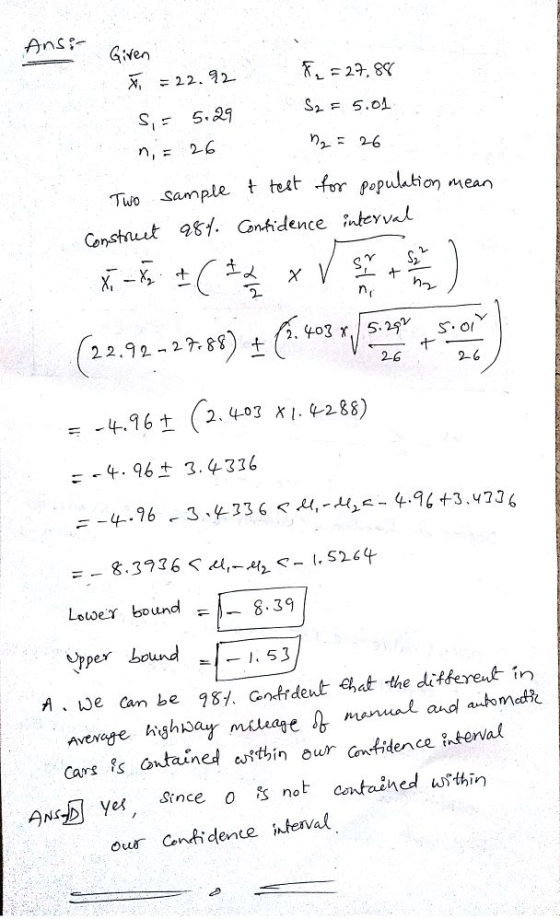 Ans:-
Given
x̄₁ = 22.92 x̄₂ = 27.88
S₁ = 5.29 S₂ = 5.01
n₁ = 26 n₂ = 26
Two sample t test for population mean
Construct 98%. Confidence interval
x̄₁ - x̄₂ ± (t α/2 × √(S₁²/n₁ + S₂²/n₂))
(22.92 - 27.88) ± (2.403 × √(5.29²/26 + 5.01²/26))
= -4.96 ± (2.403 × 1.4288)
= -4.96 ± 3.4336
= -4.96 - 3.4336 < μ₁-μ₂ < -4.96 + 3.4336
= -8.3936 < μ₁-μ₂ < -1.5264
Lower bound = -8.39
Upper bound = -1.53
A. We can be 98%. Confident that the different in
Average highway mileage of manual and automatic
Cars is contained within our confidence interval
ANS-D Yes, Since 0 is not contained within
our confidence interval.